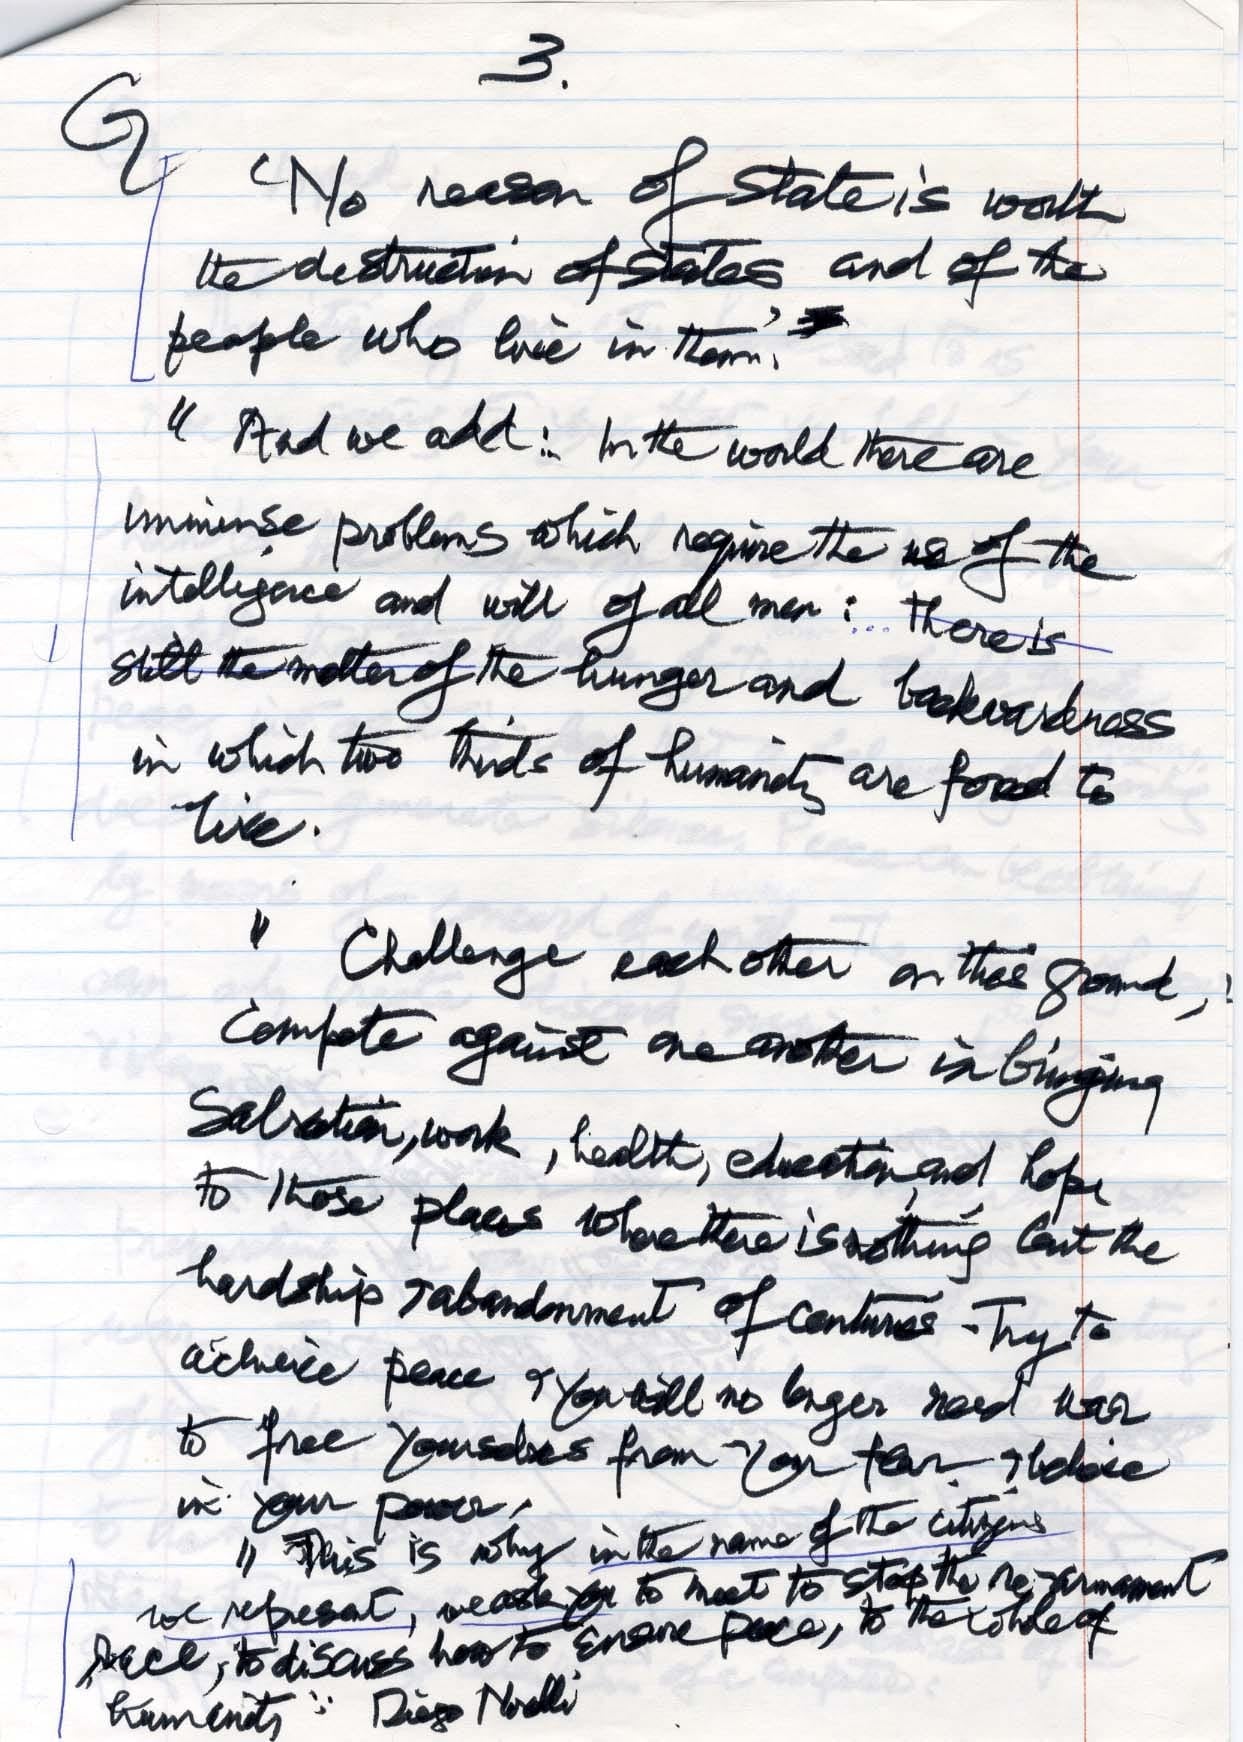 3.
"No reason of state is worth
the destruction of states and of the
people who live in them."
" And we add: In the world there are
immense problems which require the use of the
intelligence and will of all men: ... there is
still the matter of the hunger and backwardness
in which two thirds of humanity are forced to
live.
" Challenge each other on this ground,
Compete against one another in bringing
Salvation, work, health, education, and hope
to those places where there is nothing but the
hardship & abandonment of centuries - Try to
achieve peace & you will no longer need war
to free yourselves from your fear & believe
in your power.
" This is why in the name of the citizens
we represent, we ask you to meet to stop the re-armament
race, to discuss how to ensure peace, to the whole of
humanity" Diego Novelli